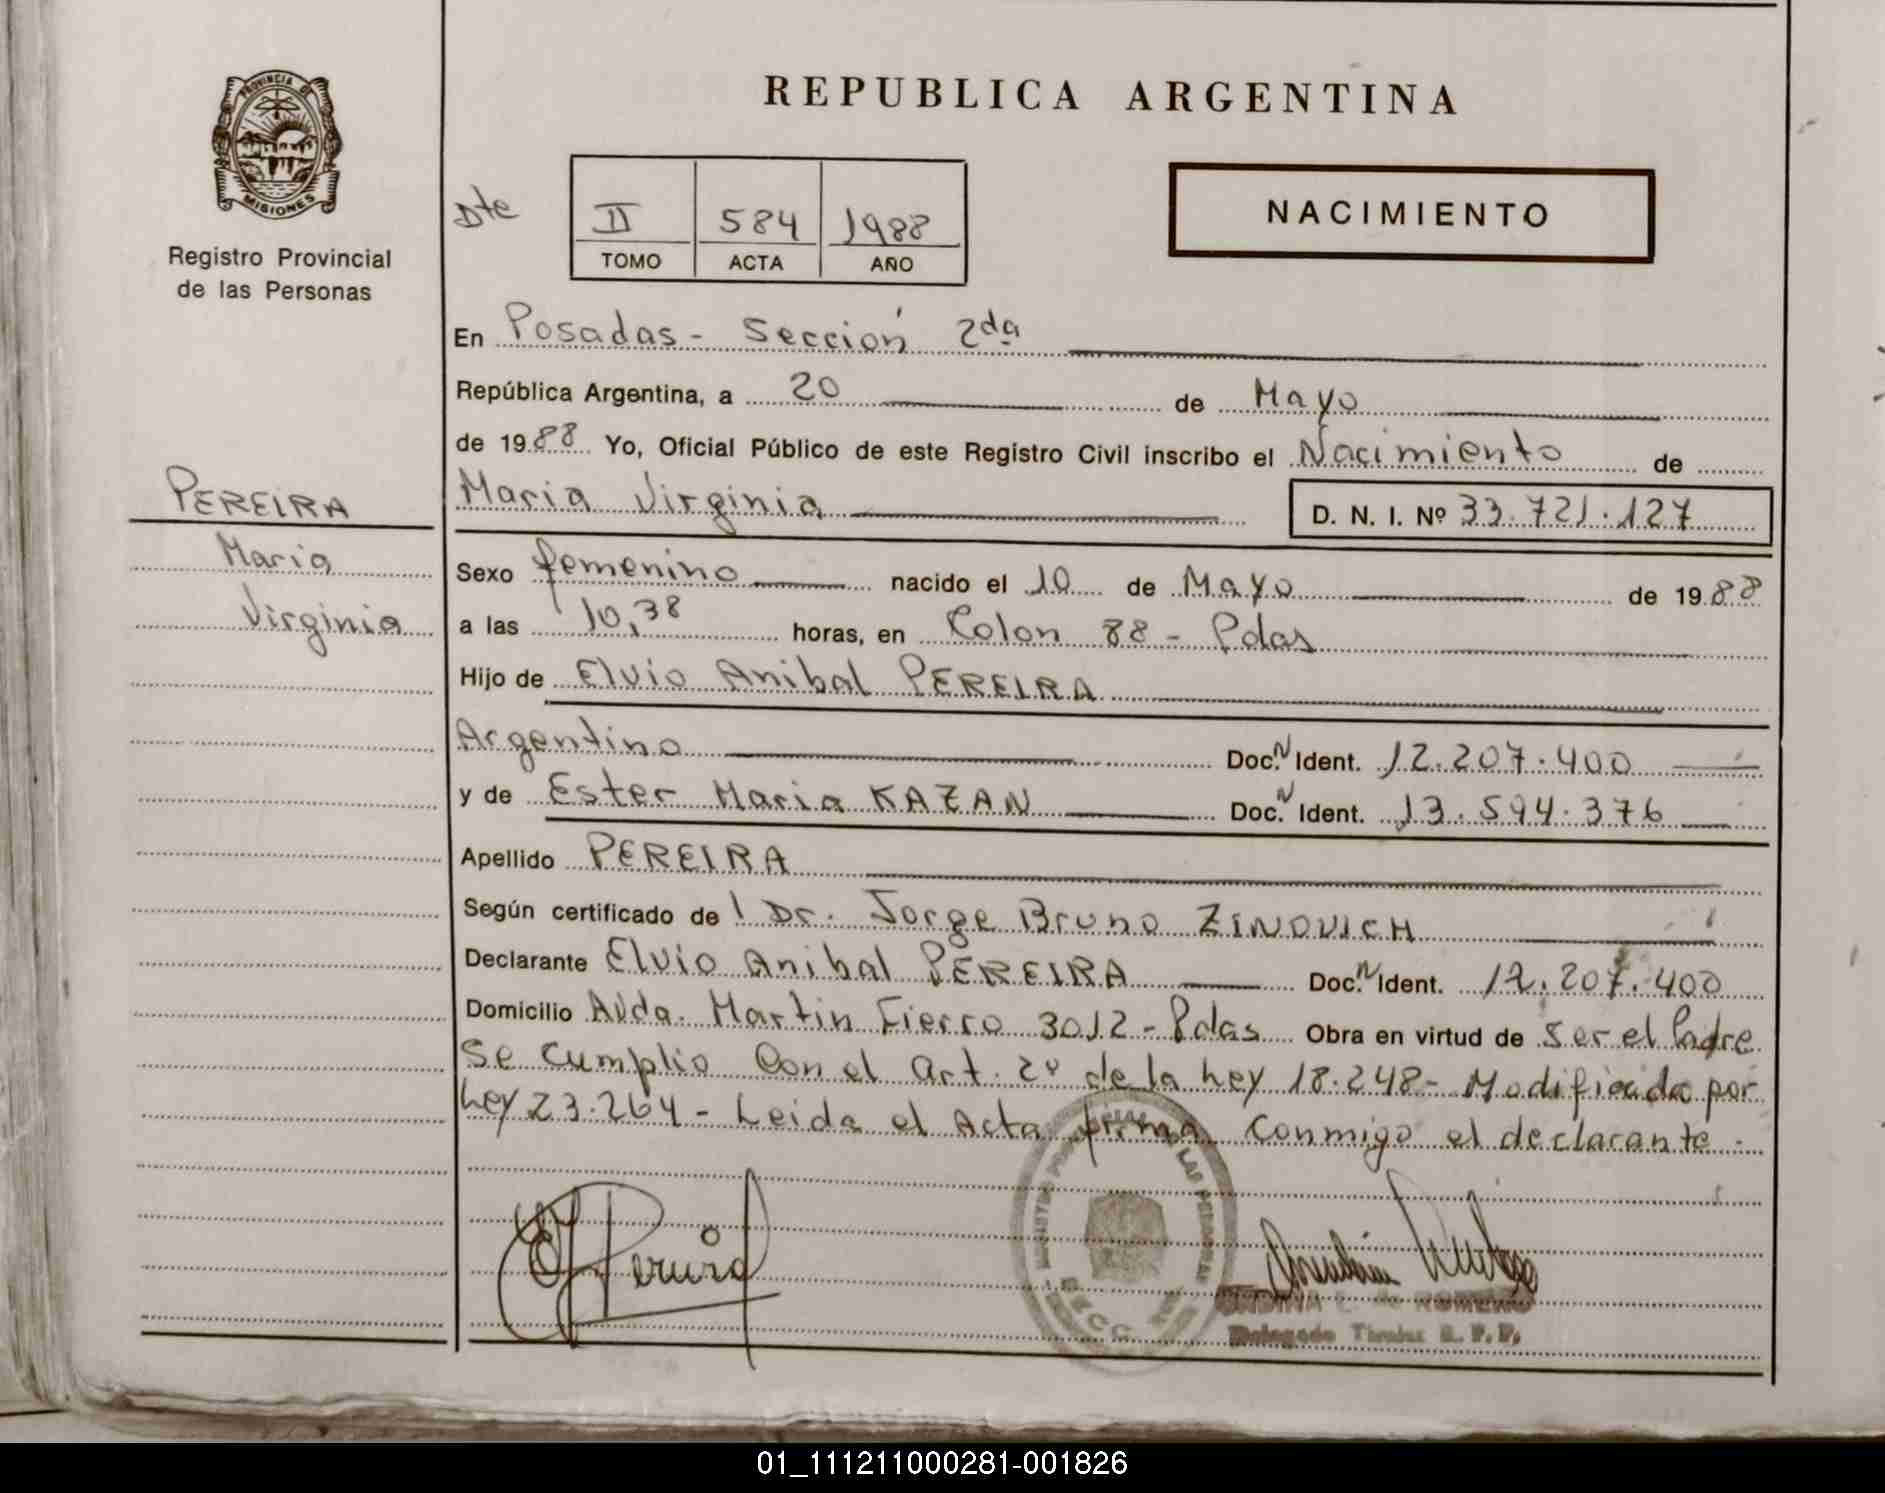 REPUBLICA ARGENTINA
PROVINCIA DE
MISIONES
Registro Provincial
de las Personas
Dte
II 584 1988
TOMO ACTA AÑO
NACIMIENTO
En Posadas - Sección 2da
República Argentina, a 20 de Mayo
de 1988 Yo, Oficial Público de este Registro Civil inscribo el Nacimiento de
PEREIRA
Maria Virginia D. N. I. Nº 33.721.127
Maria
Virginia
Sexo femenino nacido el 10 de Mayo de 1988
a las 10,38 horas, en Colon 88 - Pdas
Hijo de Elvio Anibal PEREIRA
Argentino Doc. N Ident. 12.207.400
y de Ester Maria KAZAN Doc. N Ident. 13.594.376
Apellido PEREIRA
Según certificado de l Dr. Jorge Bruno ZINOVICH
Declarante Elvio Anibal PEREIRA Doc. N Ident. 12.207.400
Domicilio Avda. Martin Fierro 3012 - Pdas Obra en virtud de Ser el Padre
Se cumplio Con el Art. 2º de la Ley 18.248 - Modificada por
Ley 23.264 - Leida el Acta firma Conmigo el declarante.
LAS PERSONAS
ROMERO
Delegado Titular R. P. P.
01_111211000281-001826